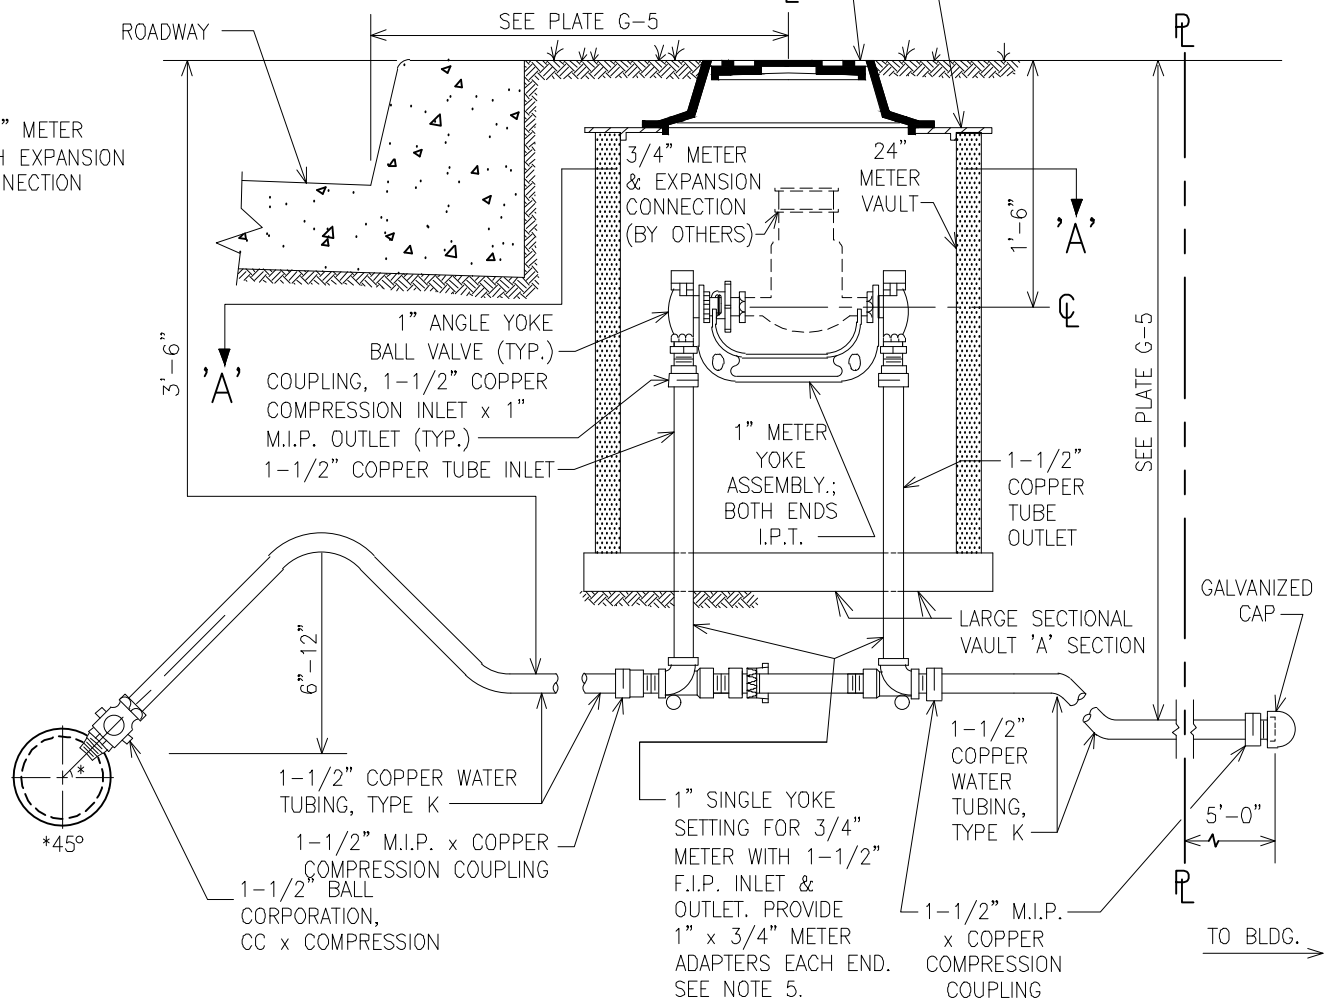 SEE PLATE G-5
ROADWAY
" METER
H EXPANSION
NECTION
3/4" METER
& EXPANSION
CONNECTION
(BY OTHERS)
24"
METER
VAULT
1'-6"
'A'
PL
CL
1" ANGLE YOKE
BALL VALVE (TYP.)
3'-6"
'A'
COUPLING, 1-1/2" COPPER
COMPRESSION INLET x 1"
M.I.P. OUTLET (TYP.)
1-1/2" COPPER TUBE INLET
1" METER
YOKE
ASSEMBLY.;
BOTH ENDS
I.P.T.
1-1/2"
COPPER
TUBE
OUTLET
SEE PLATE G-5
GALVANIZED
CAP
LARGE SECTIONAL
VAULT 'A' SECTION
6"-12"
*
*45°
1-1/2" COPPER WATER
TUBING, TYPE K
1-1/2" M.I.P. x COPPER
COMPRESSION COUPLING
1-1/2" BALL
CORPORATION,
CC x COMPRESSION
1" SINGLE YOKE
SETTING FOR 3/4"
METER WITH 1-1/2"
F.I.P. INLET &
OUTLET. PROVIDE
1" x 3/4" METER
ADAPTERS EACH END.
SEE NOTE 5.
1-1/2"
COPPER
WATER
TUBING,
TYPE K
1-1/2" M.I.P.
x COPPER
COMPRESSION
COUPLING
5'-0"
PL
TO BLDG.